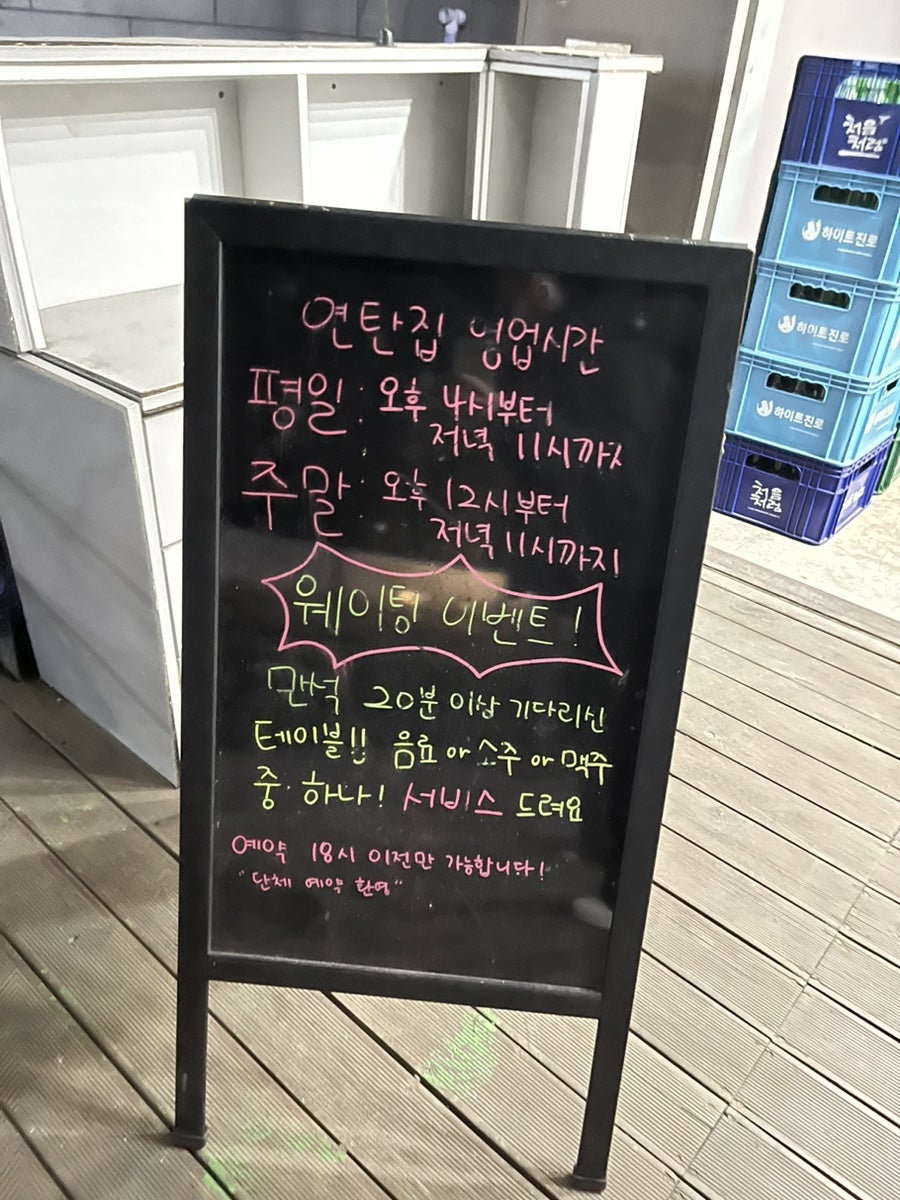 연탄집 영업시간
평일 : 오후 4시부터
저녁 11시까지
주말 : 오후 12시부터
저녁 11시까지
웨이팅 이벤트!
만석 20분 이상 기다리신
테이블!! 음료 or 소주 or 맥주
중 하나! 서비스 드려요
예약 18시 이전만 가능합니다!
"단체 예약 환영"
처음처럼
하이트진로
하이트진로
하이트진로
처음처럼